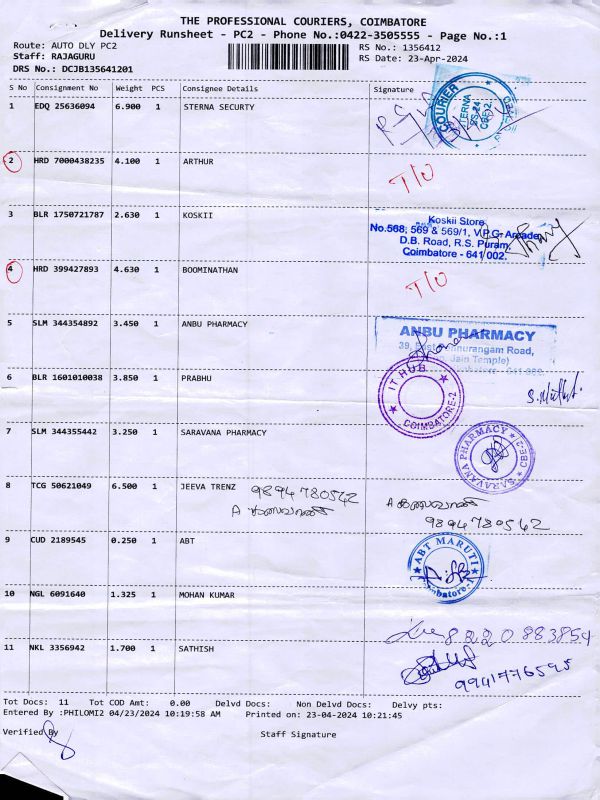 THE PROFESSIONAL COURIERS, COIMBATORE
Delivery Runsheet - PC2 - Phone No.:0422-3505555 - Page No.:1
Route: AUTO DLY PC2 RS No.: 1356412
Staff: RAJAGURU RS Date: 23-Apr-2024
DRS No.: DCJB135641201
S No Consignment No Weight PCS Consignee Details Signature
1 EDQ 25636094 6.900 1 STERNA SECURITY
COURIER
2 HRD 7000438235 4.100 1 ARTHUR T/O
3 BLR 1750721787 2.630 1 KOSKII
Koskii Store
No.568, 569 & 569/1, V.P.G. Arcade,
D.B. Road, R.S. Puram,
Coimbatore - 641 002.
4 HRD 399427893 4.630 1 BOOMINATHAN T/O
5 SLM 344354892 3.450 1 ANBU PHARMACY
ANBU PHARMACY
Jain Temple)
6 BLR 1601010038 3.850 1 PRABHU
IT HUB
COIMBATORE-2
7 SLM 344355442 3.250 1 SARAVANA PHARMACY
SARAVANA PHARMACY CBE-2
8 TCG 50621049 6.500 1 JEEVA TRENZ 9894780542
9894780542
9 CUD 2189545 0.250 1 ABT
ABT MARUTI
10 NGL 6091640 1.325 1 MOHAN KUMAR
8220883854
11 NKL 3356942 1.700 1 SATHISH
9941776595
Tot Docs: 11 Tot COD Amt: 0.00 Delvd Docs: Non Delvd Docs: Delvy pts:
Entered By :PHILOMI2 04/23/2024 10:19:58 AM Printed on: 23-04-2024 10:21:45
Verified By Staff Signature